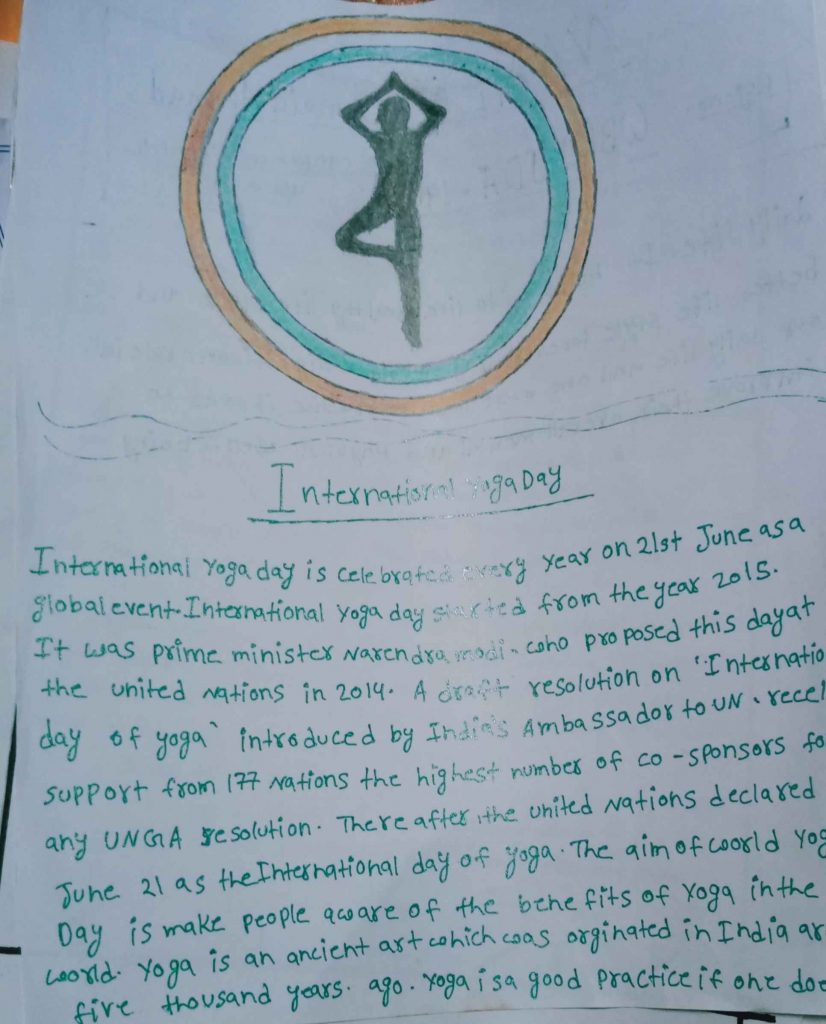 International Yoga Day
International Yoga day is celebrated every year on 21st June as a
global event. International Yoga day started from the year 2015.
It was prime minister Narendra modi. who proposed this day at
the united nations in 2014. A draft resolution on 'Internatio
day of yoga' introduced by India's Ambassador to UN. recei
support from 177 Nations the highest number of co-sponsors fo
any UNGA resolution. There after, the united Nations declared
June 21 as the International day of yoga. The aim of world Yog
Day is make people aware of the benefits of Yoga in the
world. Yoga is an ancient art which was orginated in India ar
five thousand years. ago. Yoga is a good practice if one doe